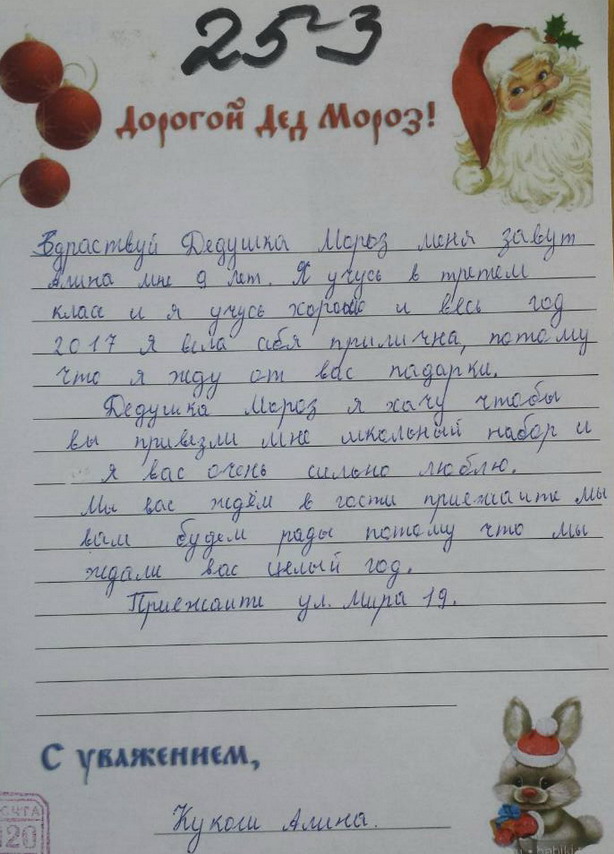 25-3
Дорогой Дед Мороз!
Здраствуй Дедушка Мороз меня завут
Алина мне 9 лет. Я учусь в третем
класе и я учусь хорошо и весь год
2017 я вела себя прилична, потому
что я жду от вас падарки.
Дедушка Мороз я хачу чтобы
вы привезли мне школьный набор и
я вас очень сильно люблю.
Мы вас ждём в гости приежаите мы
вам будем рады потому что мы
ждали вас целый год.
Приежаите ул. Мира 19.
С уважением,
Кукош Алина.
20